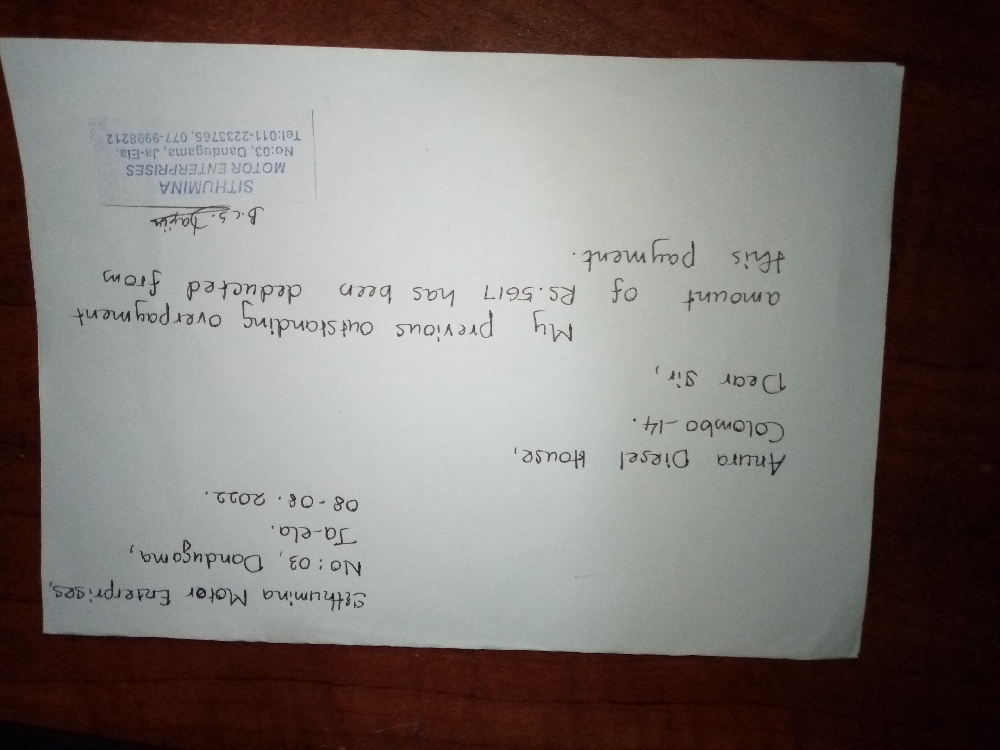 Sithumina Motor Enterprises,
No: 03, Dandugama,
Ja-ela.
08-08. 2022.
Anura Diesel House,
Colombo-14.
Dear Sir,
My previous outstanding overpayment
amount of Rs. 5617 has been deducted from
this payment.
B.C.S.
SITHUMINA
MOTOR ENTERPRISES
No:03, Dandugama, Ja-Ela.
Tel:011-2233765, 077-9998212